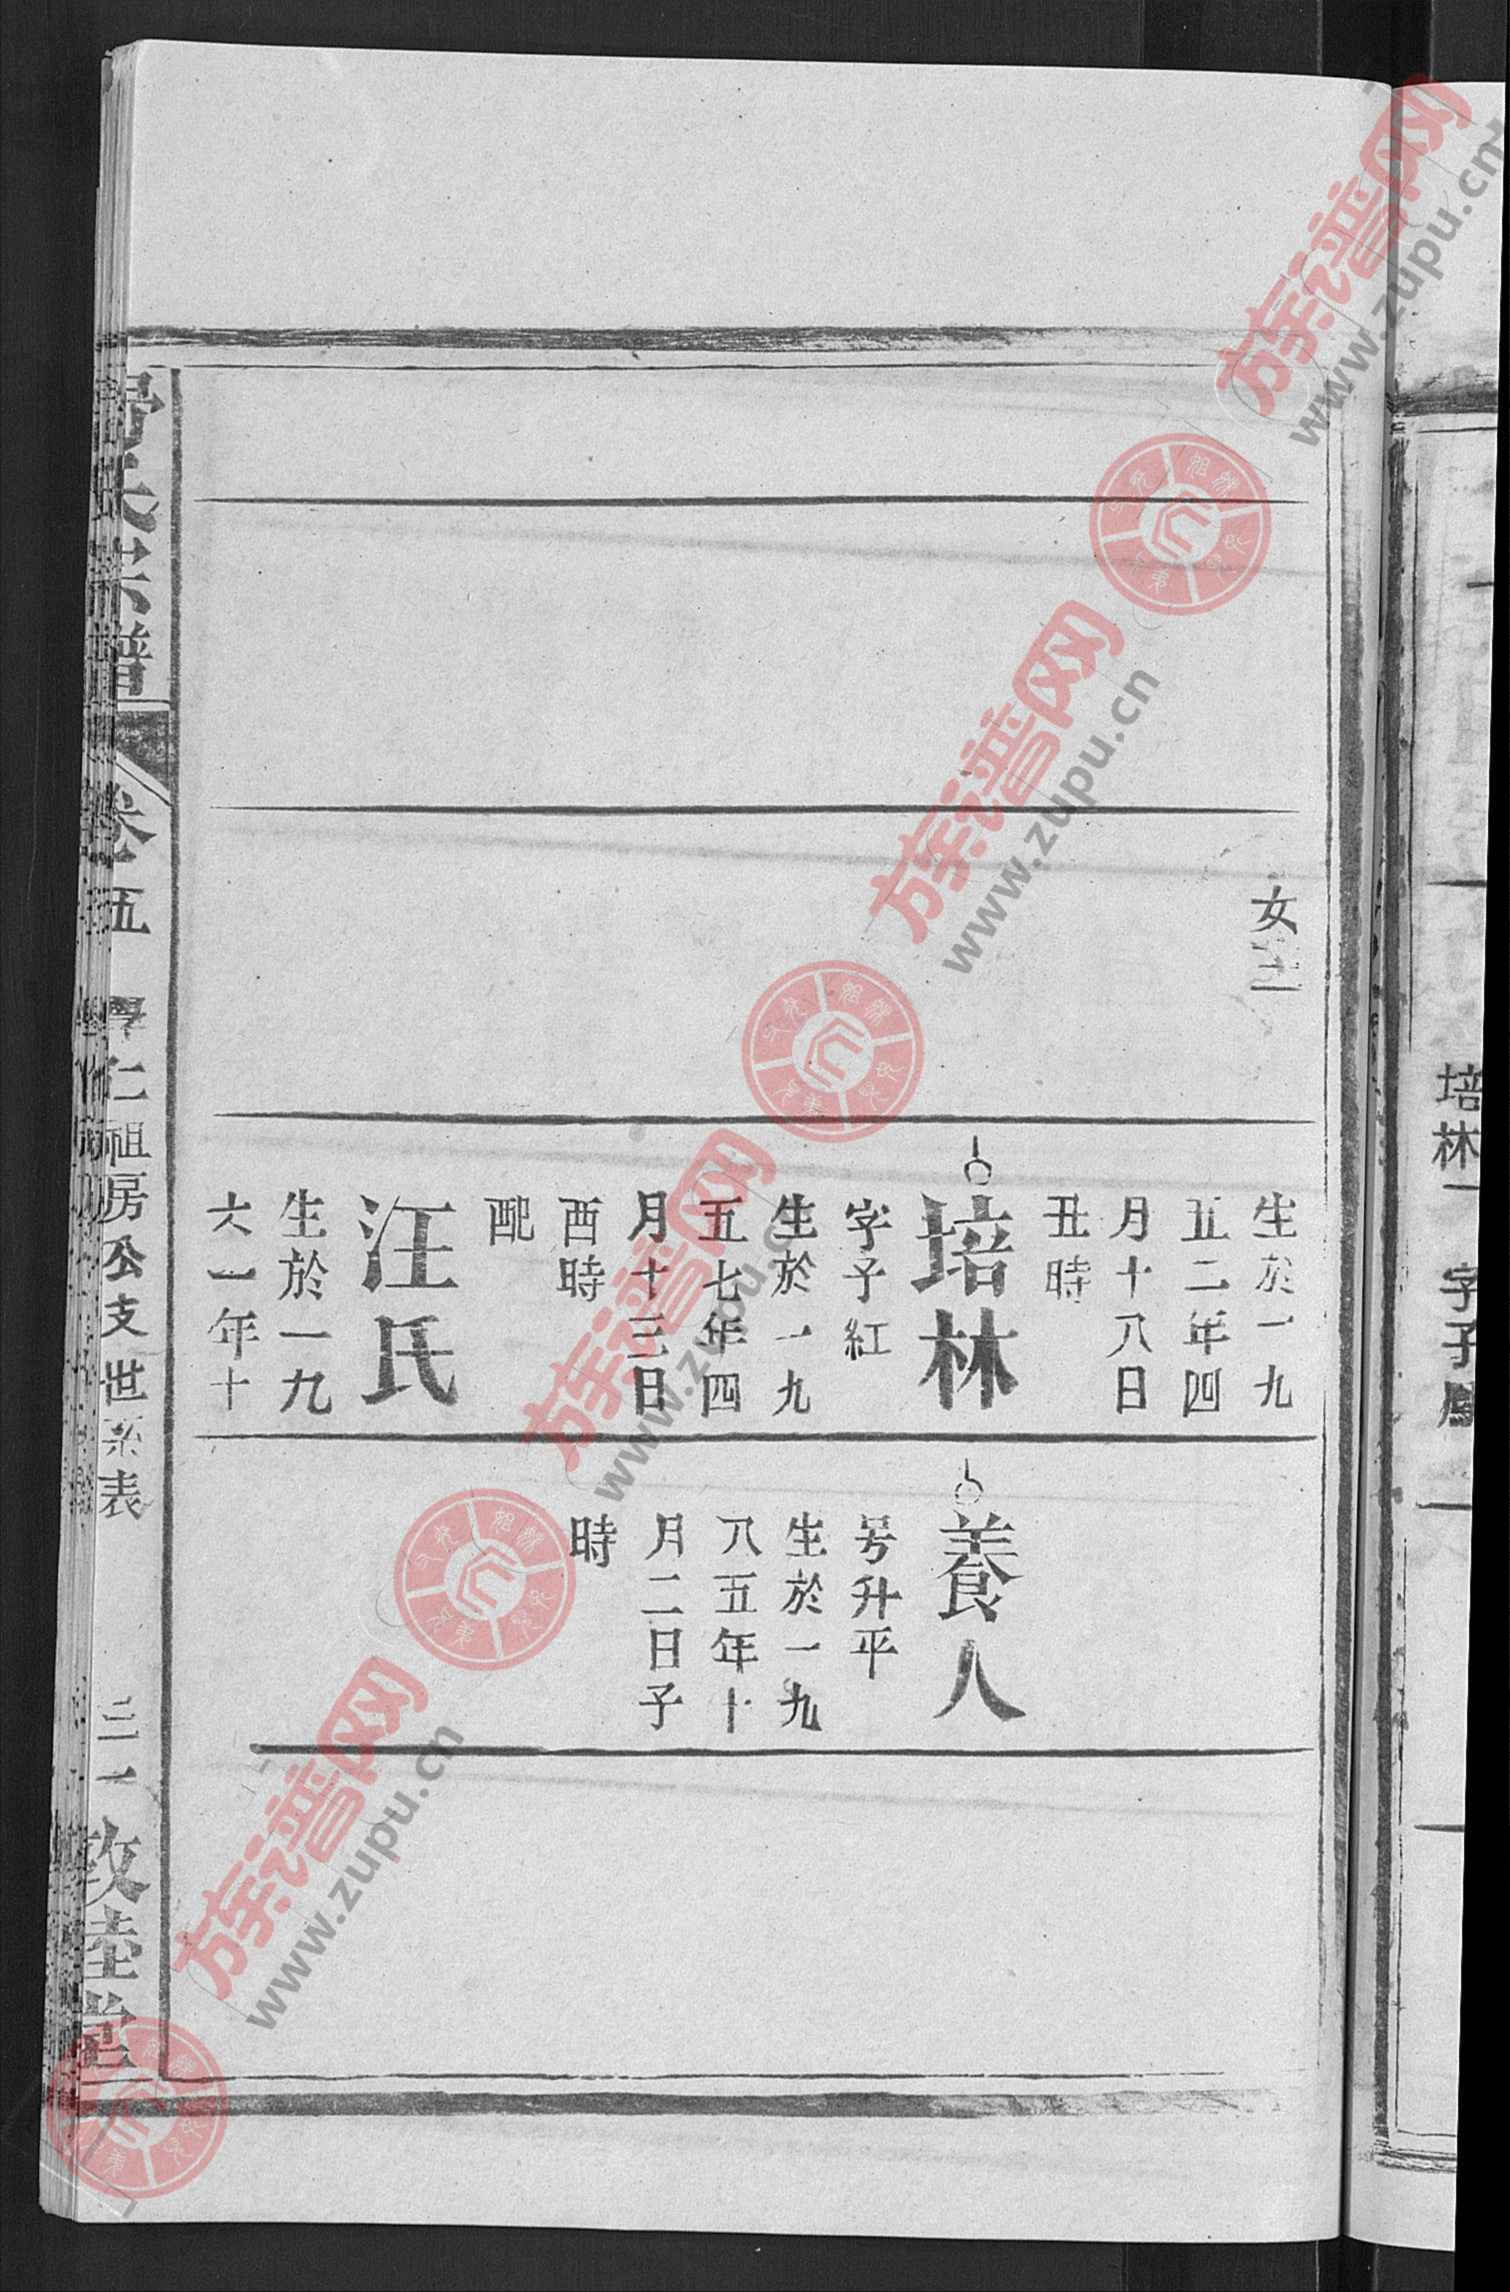 女二
生於一九
五二年四
月十八日
丑時
培林
字子紅
生於一九
五七年四
月十三日
酉時
配
汪氏
生於一九
六一年十
養人
号升平
生於一九
八五年十
月二日子
時
氏宗譜
卷五
學仁祖房公支世系表
三一
敦睦堂
培林
字子
族谱网
www.zupu.cn
族谱网
www.zupu.cn
族谱网
www.zupu.cn
族谱网
www.zupu.cn